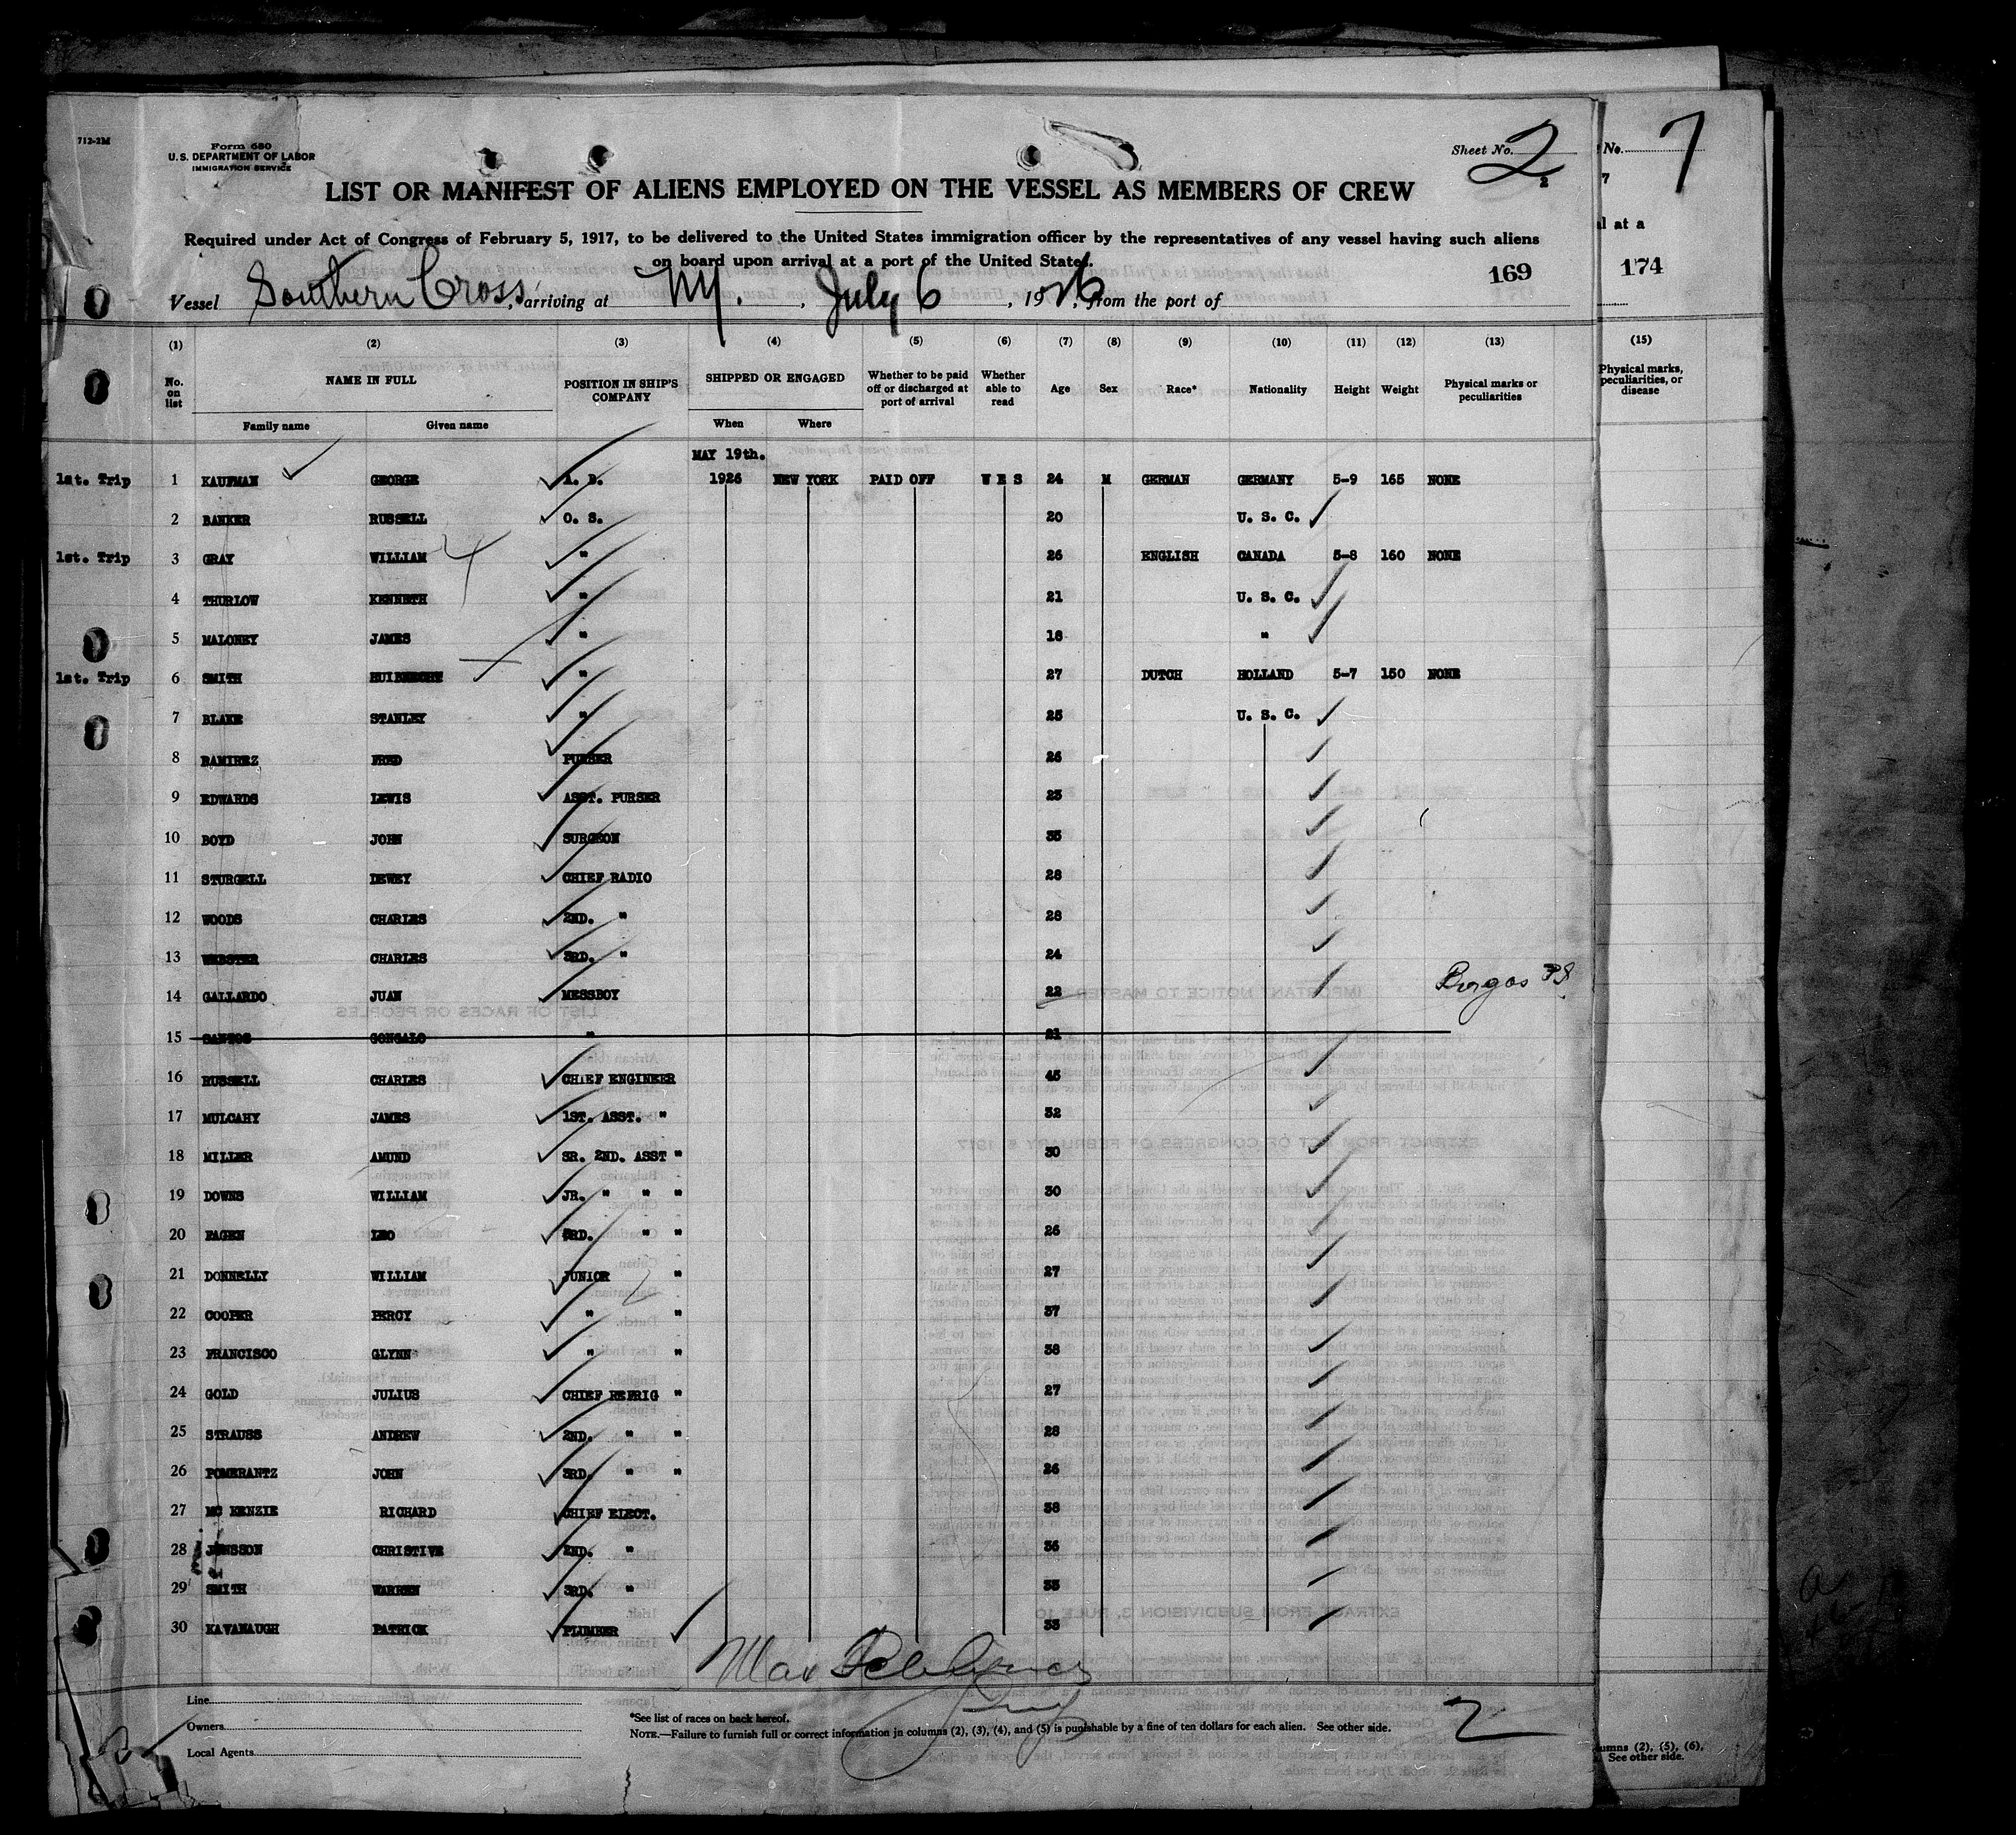 712-2M
Form 680
U.S. DEPARTMENT OF LABOR
IMMIGRATION SERVICE
Sheet No. 2
2
LIST OR MANIFEST OF ALIENS EMPLOYED ON THE VESSEL AS MEMBERS OF CREW
Required under Act of Congress of February 5, 1917, to be delivered to the United States immigration officer by the representatives of any vessel having such aliens
on board upon arrival at a port of the United States.
169
Vessel Southern Cross, arriving at NY., July 6, 1926, from the port of
(1) (2) (3) (4) (5) (6) (7) (8) (9) (10) (11) (12) (13)
No. on list NAME IN FULL Family name Given name POSITION IN SHIP'S COMPANY SHIPPED OR ENGAGED When Where Whether to be paid off or discharged at port of arrival Whether able to read Age Sex Race* Nationality Height Weight Physical marks or peculiarities
MAY 19th.
1st. Trip 1 KAUFMAN GEORGE A. B. 1926 NEW YORK PAID OFF YES 24 M GERMAN GERMANY 5-9 165 NONE
2 BANKER RUSSELL O. S. 20 U. S. C.
1st. Trip 3 GRAY WILLIAM " 26 ENGLISH CANADA 5-8 160 NONE
4 THURLOW KENNETH " 21 U. S. C.
5 MALONEY JAMES " 18 "
1st. Trip 6 SMITH " 27 DUTCH HOLLAND 5-7 150 NONE
7 BLAKE STANLEY " 25 U. S. C.
8 RAMIREZ FRED PURSER 26
9 EDWARDS LEWIS ASST. PURSER 23
10 BOYD JOHN SURGEON 35
11 STURGELL DEWEY CHIEF RADIO 28
12 WOODS CHARLES 2ND. " 28
13 WEBSTER CHARLES 3RD. " 24
14 GALLARDO JUAN MESSBOY 22
15 SANTOS GONSALO " 21
16 RUSSELL CHARLES CHIEF ENGINEER 45
17 MULCAHY JAMES 1ST. ASST. " 32
18 MILLER AMUND SR. 2ND. ASST " 30
19 DOWNS WILLIAM JR. " " " 30
20 FAGEN LEO 3RD. " " 26
21 DONNELLY WILLIAM JUNIOR " 27
22 COOPER PERCY " " 37
23 FRANCISCO GLYNN " " 38
24 GOLD JULIUS CHIEF REFRIG " 27
25 STRAUSS ANDREW 2ND. " " 28
26 POMERANTZ JOHN 3RD. " " 26
27 MC KENZIE RICHARD CHIEF ELECT. 38
28 CHRISTIVE 2ND. " 36
29 SMITH WARREN 3RD. " 35
30 KAVANAUGH PATRICK PLUMBER 33
Line
Owners
Local Agents
*See list of races on back hereof.
NOTE.—Failure to furnish full or correct information in columns (2), (3), (4), and (5) is punishable by a fine of ten dollars for each alien. See other side.
2
No. 7
7
al at a
174
(15)
Physical marks,
peculiarities, or
disease
umns (2), (5), (6),
See other side.